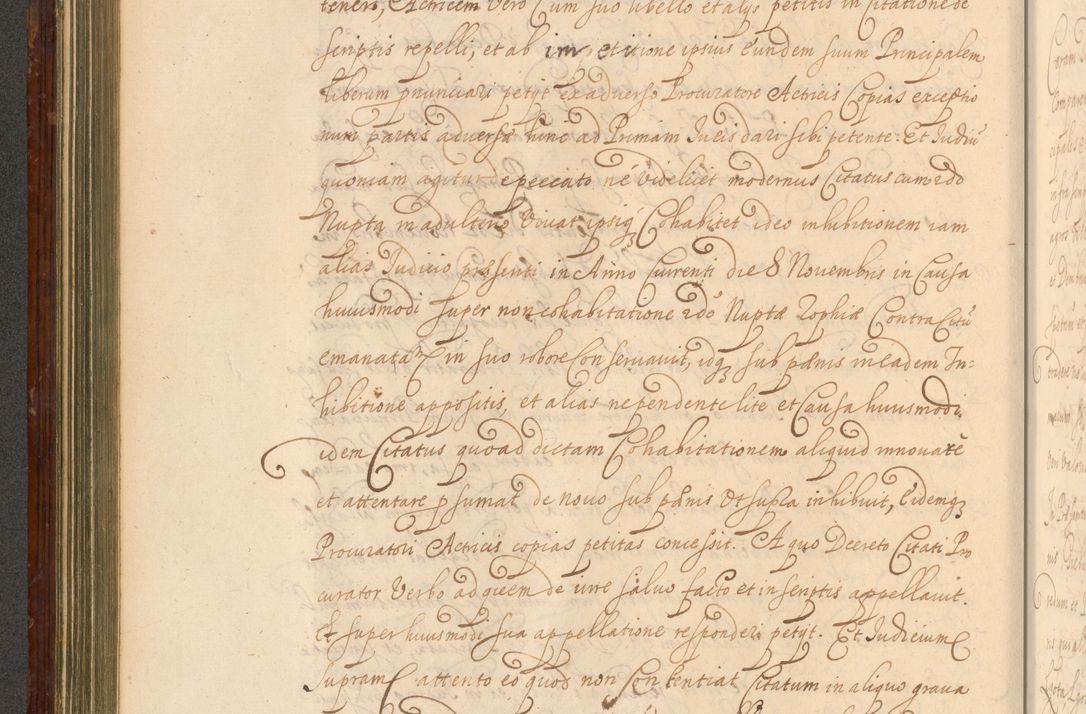 teneri, Actricem vero Cum suo libello et alys petitis in Citatione de
scriptis repelli, et ab impetitione ipsius Eundem suum Principalem
liberum pnunciari petyt ex adverso Procuratore Actricis Copias exceptio
num partis adversæ hinc ad Primam Iuris dari sibi petente. Et Iudiuũ
quoniam agitur de peccato ne videlicet modernus Citatus cum rdo
Nupta in adulterio Vivat ipsiq3 Cohabitet ideo inhibitionem iam
alias Iudicio præsenti in Anno Currenti die 8 Novembris in Causa
huiusmodi super non cohabitatione rdõ Nuptæ Zophiæ Contra Citũ
emanatã in suo robore Conservavit, idq3 sub pænis in eadem In=
hibitione appositis, et alias ne pendente lite et Causa huiusmodi
idem Citatus quoad dictam Cohabitationem aliquid innovare
et attentare psumat de novo sub pænis Vt supra inhibuit, Eidemq3
Procuratori Actricis copias petitas concessit. A quo Decreto Citati Pro
curator Verbo ad quem de iure salvo facto et in scriptis appellavit.
Et super huiusmodi sua appellatione responderi petyt. Et Iudicium
supram attento eo quod non Contentiat Citatum in aliquo grava